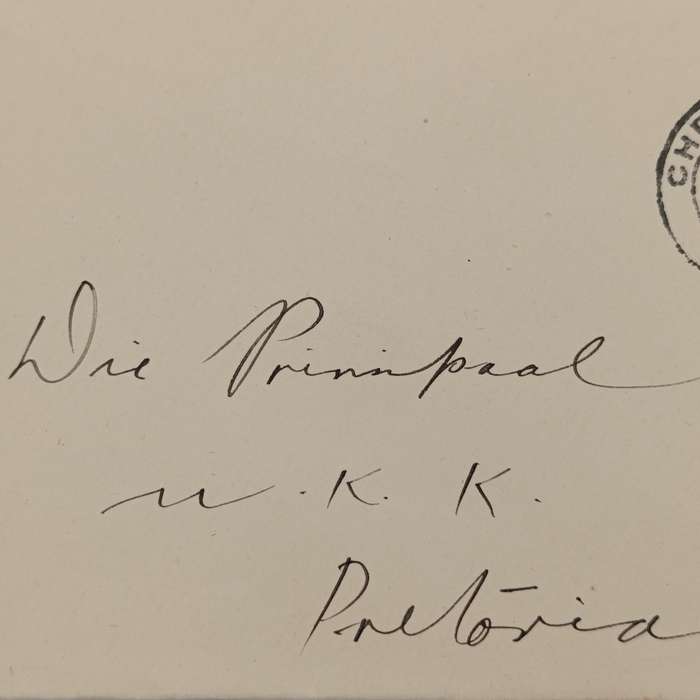 CHR
Die Prinsipaal
U.K.K.
Pretoria